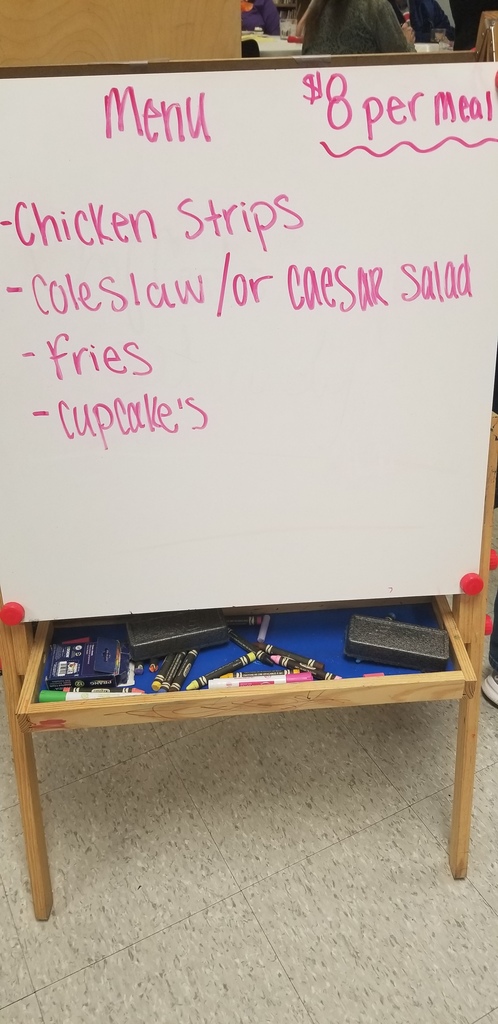 Menu
$8 per meal
-Chicken Strips
-Coleslaw/or CAESAR salad
-fries
-cupcake's